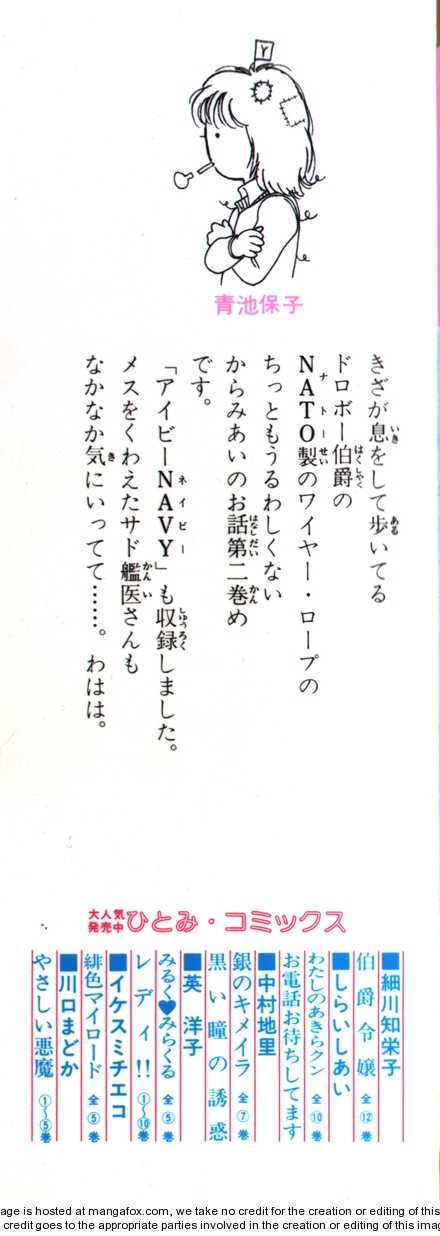 Y
青池保子
きざが息をして歩いてる
ドロボー伯爵の
NATO製のワイヤー・ロープの
ちっともうるわしくない
からみあいのお話第二巻め
です。
「アイビーNAVY」も収録しました。
メスをくわえたサド艦医さんも
なかなか気にいってて……。わはは。
大人気発売中 ひとみ・コミックス
■細川知栄子
伯爵令嬢 全⑫巻
■しらいしあい
わたしのあきらクン 全⑩巻
お電話お待ちしてます
■中村地里
銀のキメイラ 全⑦巻
黒い瞳の誘惑
■英 洋子
みるく♥みらくる 全⑤巻
レディ!! ①〜⑩巻
■イケスミチエコ
緋色マイロード 全⑤巻
■川口まどか
やさしい悪魔 ①〜⑤巻
age is hosted at mangafox.com, we take no credit for the creation or editing of this
credit goes to the appropriate parties involved in the creation or editing of this imag